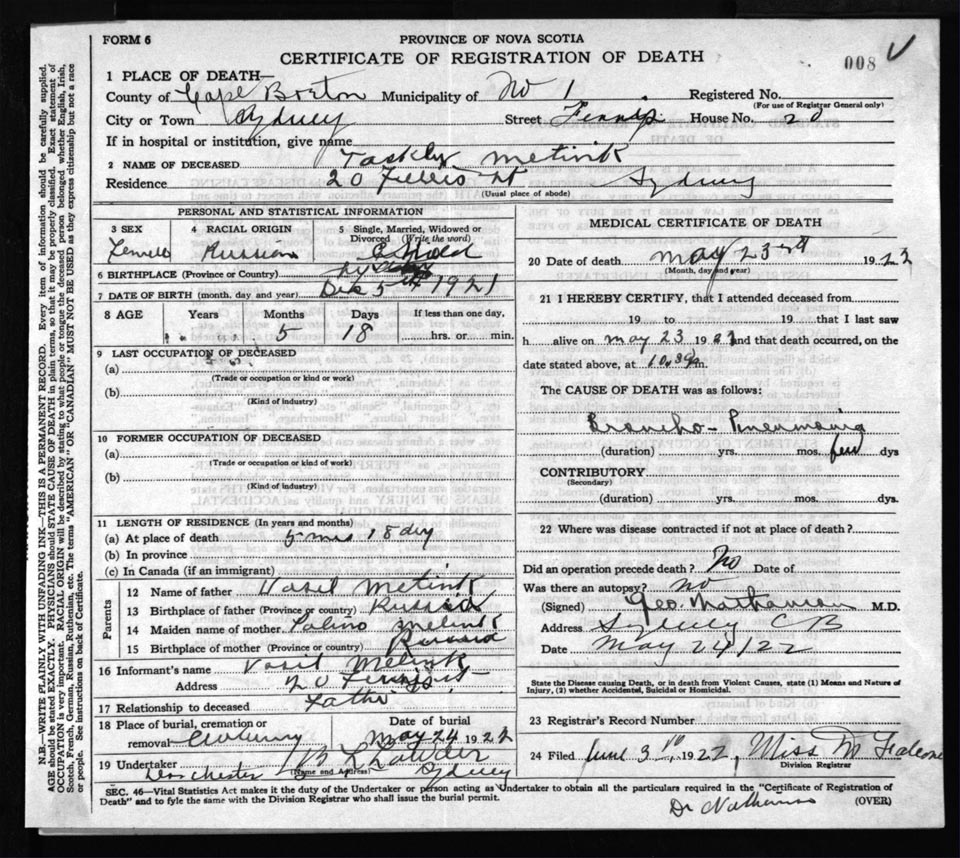 FORM 6
PROVINCE OF NOVA SCOTIA
CERTIFICATE OF REGISTRATION OF DEATH
008
1 PLACE OF DEATH—
County of Cape Breton Municipality of No 1 Registered No.
(For use of Registrar General only)
City or Town Sydney Street House No. 20
If in hospital or institution, give name
2 NAME OF DECEASED Metink
Residence 20 St Sydney
(Usual place of abode)
PERSONAL AND STATISTICAL INFORMATION
3 SEX 4 RACIAL ORIGIN 5 Single, Married, Widowed or Divorced (Write the word)
Female Russian Child
6 BIRTHPLACE (Province or Country)
7 DATE OF BIRTH (month, day and year) Dec 5th 1921
8 AGE Years Months Days If less than one day,
5 18 hrs. or min.
9 LAST OCCUPATION OF DECEASED
(a)
(Trade or occupation or kind or work)
(b)
(Kind of industry)
10 FORMER OCCUPATION OF DECEASED
(a)
(Trade or occupation or kind or work)
(b)
(Kind of industry)
11 LENGTH OF RESIDENCE (In years and months)
(a) At place of death 5 mos 18 dy
(b) In province
(c) In Canada (if an immigrant)
Parents
12 Name of father Vasil Metink
13 Birthplace of father (Province or country) Russia
14 Maiden name of mother Metink
15 Birthplace of mother (Province or country) Russia
16 Informant's name Vasil Metink
Address 20 St
17 Relationship to deceased Father
18 Place of burial, cremation or removal Date of burial May 24 1922
19 Undertaker
(Name and Address) Sydney
MEDICAL CERTIFICATE OF DEATH
20 Date of death May 23rd 1922
(Month, day and year)
21 I HEREBY CERTIFY, that I attended deceased from
19 to 19 that I last saw
h alive on May 23 1922 and that death occurred, on the
date stated above, at m.
The CAUSE OF DEATH was as follows:
Broncho-Pneumonia
(duration) yrs. mos. few dys
CONTRIBUTORY
(Secondary)
(duration) yrs. mos. dys.
22 Where was disease contracted if not at place of death?
Did an operation precede death? No Date of
Was there an autopsy? no
(Signed) Geo. M.D.
Address Sydney CB
Date May 24/22
State the Disease causing Death, or in death from Violent Causes, state (1) Means and Nature of Injury, (2) whether Accidental, Suicidal or Homicidal.
23 Registrar's Record Number
24 Filed June 3 1922, Miss
Division Registrar
SEC. 46—Vital Statistics Act makes it the duty of the Undertaker or person acting as Undertaker to obtain all the particulars required in the "Certificate of Registration of
Death" and to fyle the same with the Division Registrar who shall issue the burial permit.
(OVER)
N.B.—WRITE PLAINLY WITH UNFADING INK—THIS IS A PERMANENT RECORD. Every item of information should be carefully supplied.
AGE should be stated EXACTLY. PHYSICIANS should STATE CAUSE OF DEATH in plain terms, so that it may be properly classified. Exact statement of
OCCUPATION is very important. RACIAL ORIGIN will be described by stating to what people or tongue the deceased person belonged whether English, Irish,
Scotch, French, German, Russian, Ruthenian, etc. The terms "AMERICAN" OR "CANADIAN" MUST NOT BE USED as they express citizenship but not a race
or people. See instructions on back of Certificate.